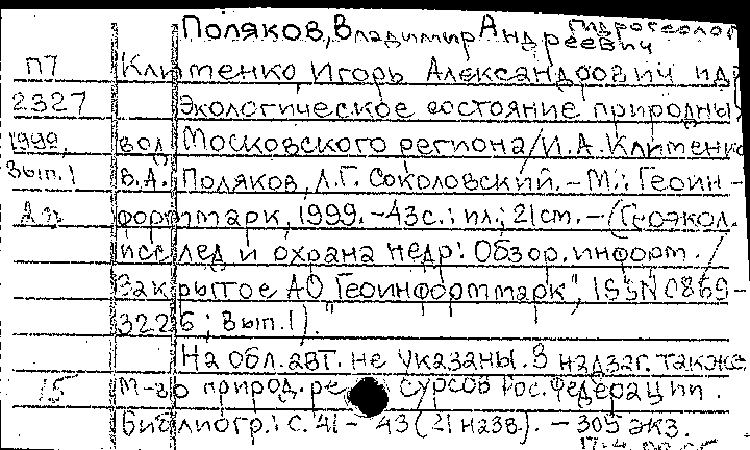 Поляков, Владимир Андреевич гидрогеолог
П7 Клименко, Игорь Александрович и др
2327 Экологическое состояние природных
1999, вод Московского региона/И.А.Клименко
Вып.1 В.А. Поляков, Л.Г. Соколовский.-М.: Геоин-
форммарк, 1999.-43с.: ил.; 21см.-(Геоэкол.
исслед и охрана недр: Обзор.информ./
Закрытое АО "Геоинформмарк", ISSN 0869-
3226; Вып.1).
На обл.авт. не указаны. В надзаг. также
15 М-во природ. ресурсов Рос.Федерации.
Библиогр.: с.41-43(21 назв.). - 305 экз.